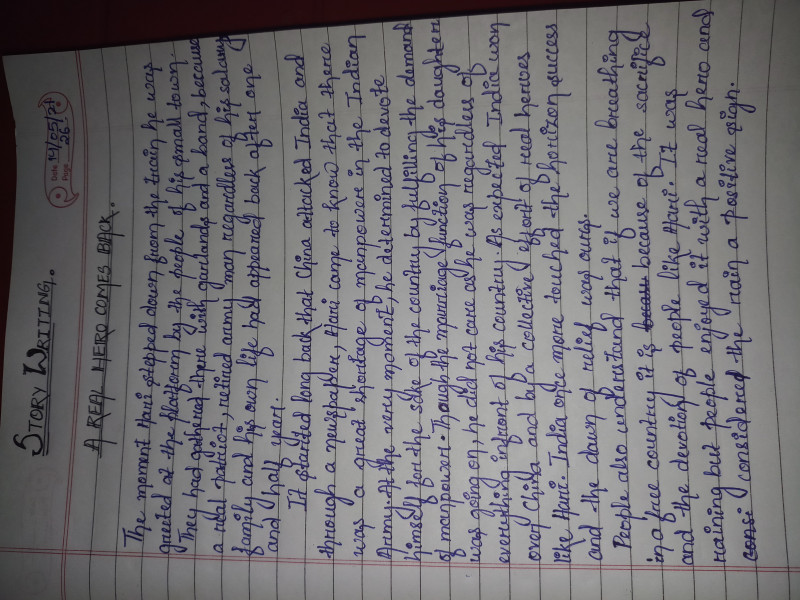 Date 14/05/21
Page 26
STORY WRITING.
A REAL HERO COMES BACK.
The moment Hari stepped down from the train he was
greeted at the platform by the people of his small town.
They had gathered there with garlands and a band, because
a real patriot, retired army man regardless of his salary
family and his own life had appeared back after one
and half year.
It started long back that China attacked India and
through a newspaper, Hari come to know that there
was a great shortage of manpower in the Indian
Army. At the very moment, he determined to devote
himself for the sake of the country by fulfilling the demand
of manpower. Though the marriage function of his daughter
was going on, he did not care as he was regardless of
everything infront of his country. As expected India won
over China and by a collective effort of real heroes
like Hari. India once more touched the horizon success
and the dawn of relief was ours.
People also understand that if we are breathing
in a free country it is because of the sacrifice
and the devotion of people like Hari. It was
raining but people enjoyed it with a real hero and
considered the rain a positive sign.